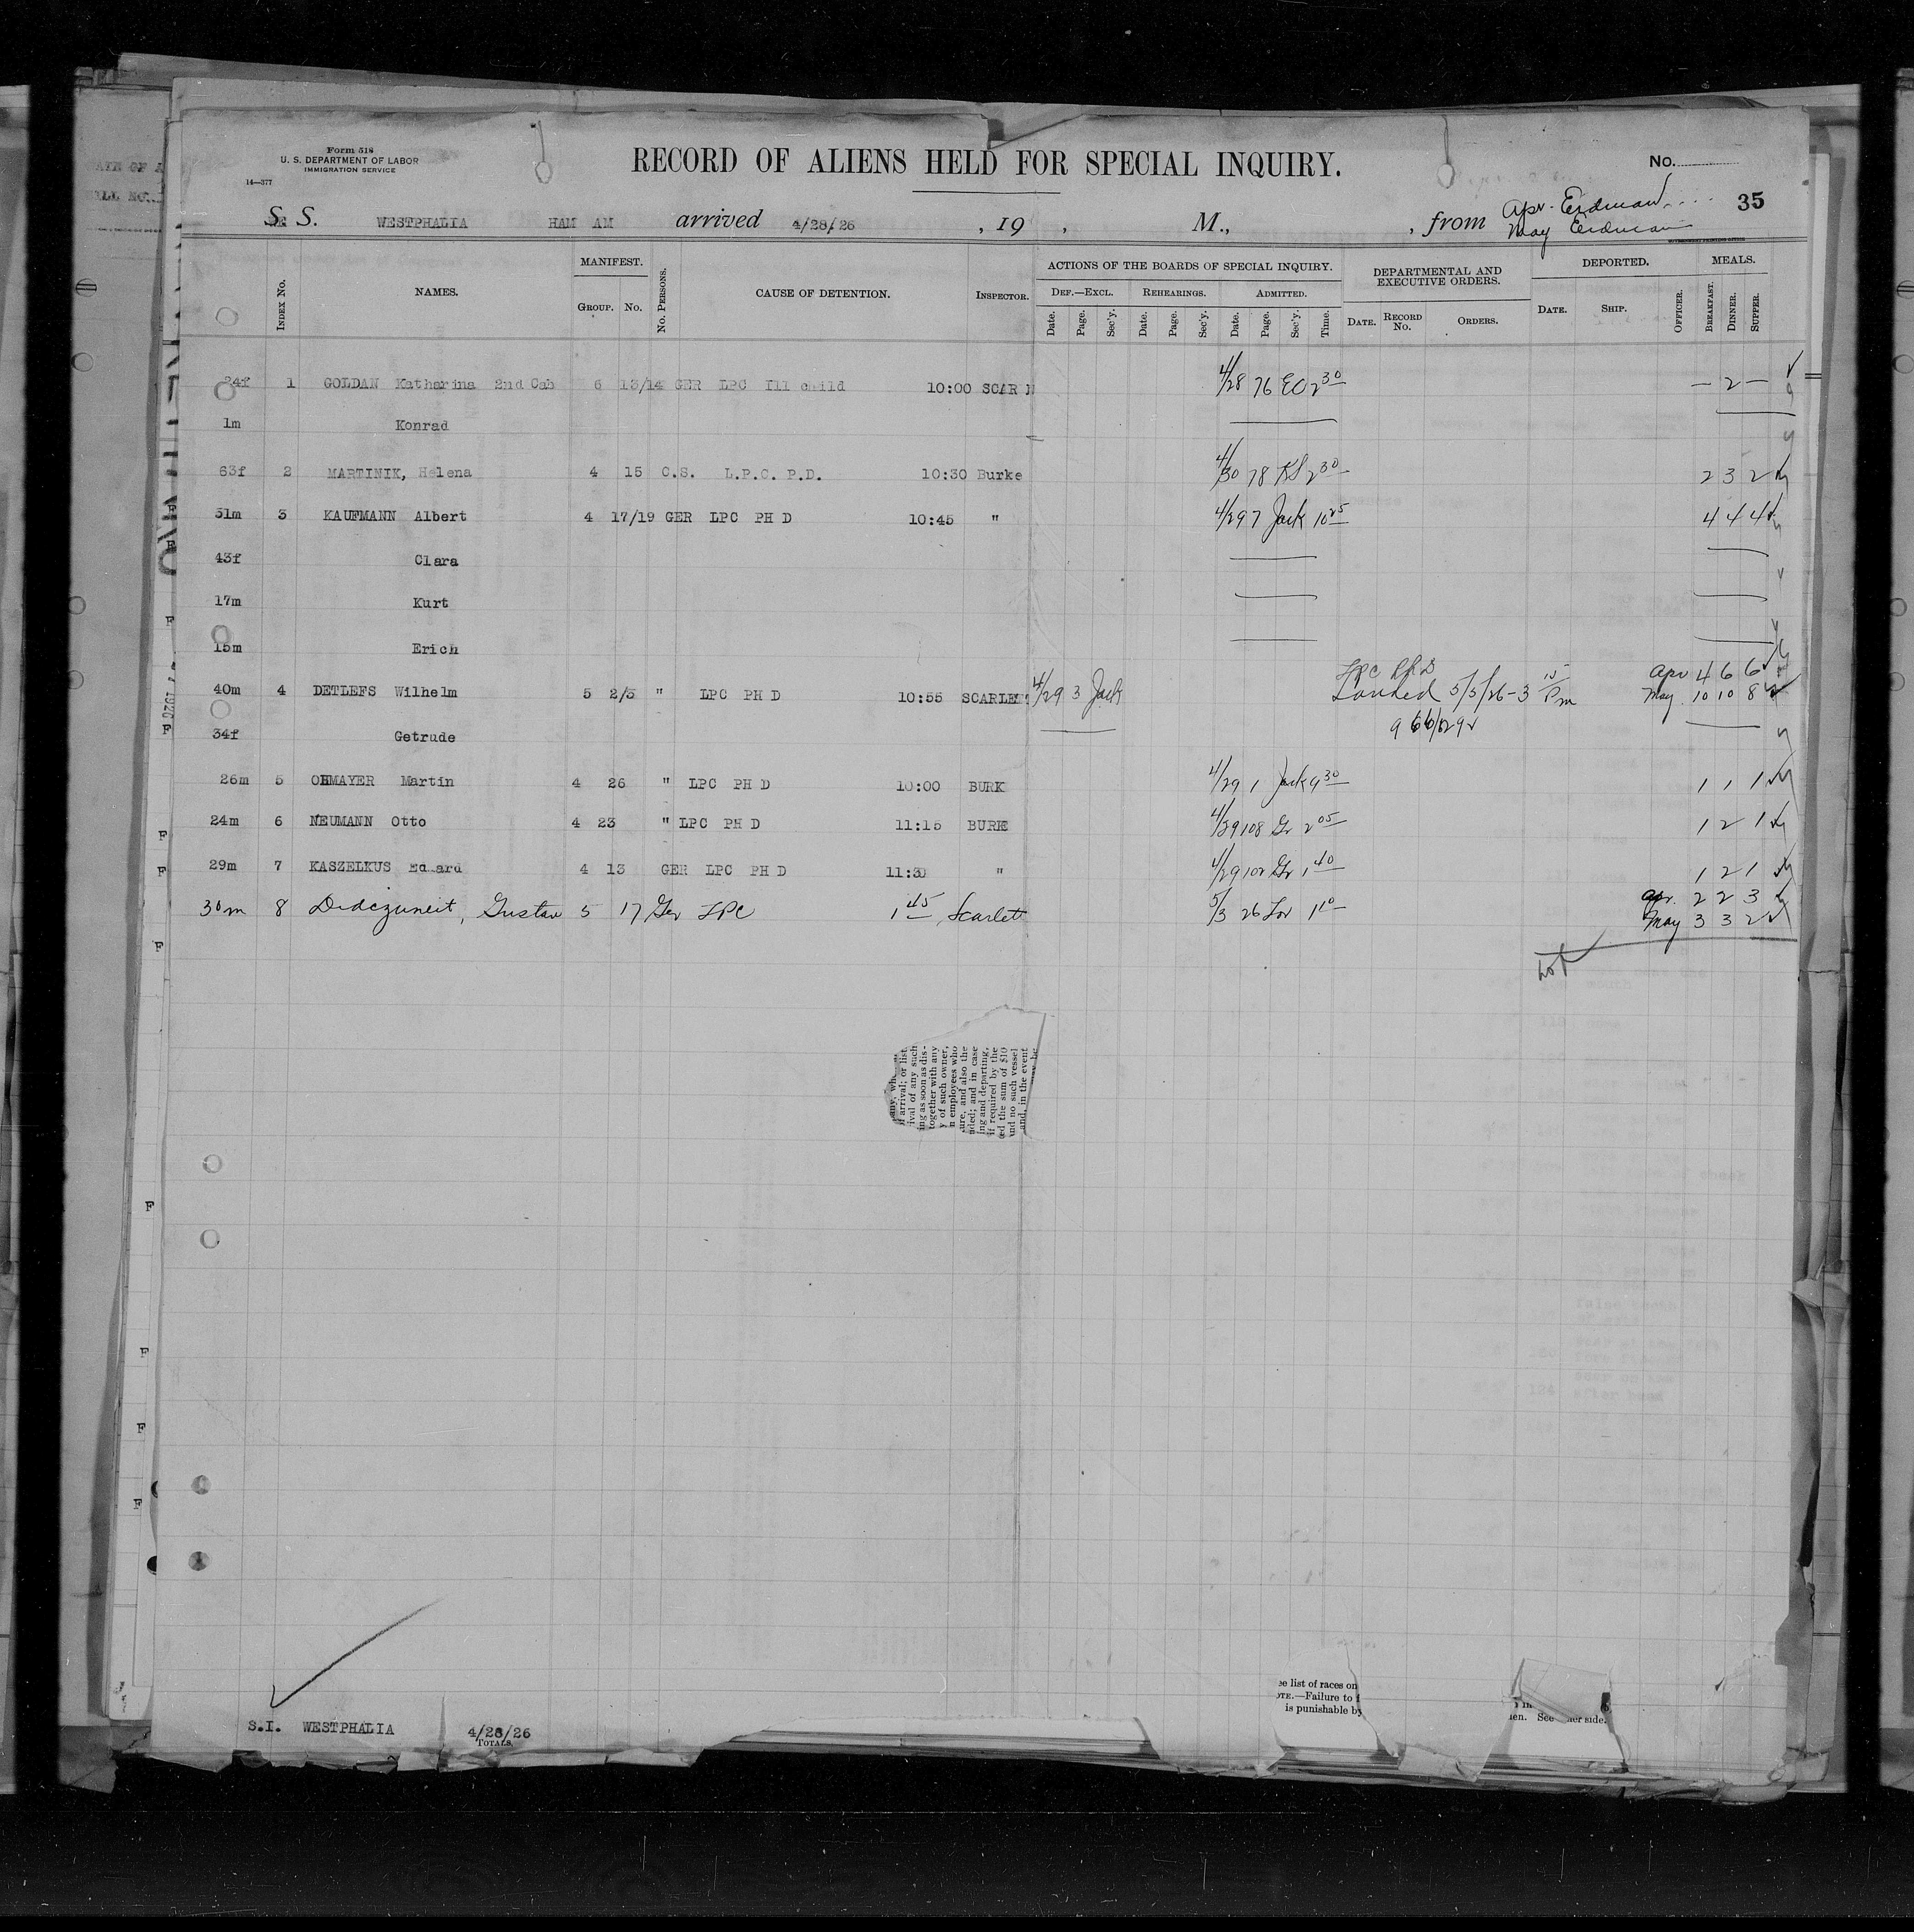 Form 518
U. S. DEPARTMENT OF LABOR
IMMIGRATION SERVICE
14—377
RECORD OF ALIENS HELD FOR SPECIAL INQUIRY.
No.
35
S. S. WESTPHALIA HAM AM arrived 4/28/26 , 19 , M., , from Apr. Erdman
May Erdman
GOVERNMENT PRINTING OFFICE
INDEX No. NAMES. MANIFEST. GROUP. No. No. PERSONS. CAUSE OF DETENTION. INSPECTOR.
ACTIONS OF THE BOARDS OF SPECIAL INQUIRY.
DEF.—EXCL. REHEARINGS. ADMITTED.
Date. Page. Sec'y. Date. Page. Sec'y. Date. Page. Sec'y. Time.
DEPARTMENTAL AND EXECUTIVE ORDERS.
DATE. RECORD No. ORDERS.
DEPORTED.
DATE. SHIP. OFFICER.
MEALS.
BREAKFAST. DINNER. SUPPER.
24f 1 GOLDAN Katharina 2nd Cab 6 13/14 GER LPC Ill child 10:00 SCAR 4/28 76 EO 2 30 — 2 —
1m Konrad
63f 2 MARTINIK, Helena 4 15 C.S. L.P.C. P.D. 10:30 Burke 4/30 78 KS 2 30 2 3 2
51m 3 KAUFMANN Albert 4 17/19 GER LPC PH D 10:45 " 4/29 7 Jack 10 25 4 4 4
43f Clara
17m Kurt
15m Erich
LPC PhD Apr 4 6 6
40m 4 DETLEFS Wilhelm 5 2/3 " LPC PH D 10:55 SCARLET 4/29 3 Jack Landed 5/5/26 - 3 15 Pm May 10 10 8
34f Getrude
26m 5 OHMAYER Martin 4 26 " LPC PH D 10:00 BURK 4/29 1 Jack 9 30 1 1 1
24m 6 NEUMANN Otto 4 23 " LPC PH D 11:15 BURKE 4/29 108 Gr 2 05 1 2 1
29m 7 KASZELKUS Eduard 4 13 GER LPC PH D 11:30 " 4/29 102 Gr 1 40 1 2 1
Apr. 2 2 3
30m 8 Didczuneit, Gustav 5 17 Ger LPC 1 45 Scarlett 5/3 26 Lov 1 10
May 3 3 2
if arrival; or list
ival of any such
ing as soon as dis-
together with any
y of such owner,
n employees who
are, and also the
nded; and in case
ing and departing,
if required by the
ed the sum of $10
and no such vessel
and, in the event
ee list of races on
OTE.—Failure to f
is punishable by
ien. See her side.
S.I. WESTPHALIA 4/28/26
TOTALS.